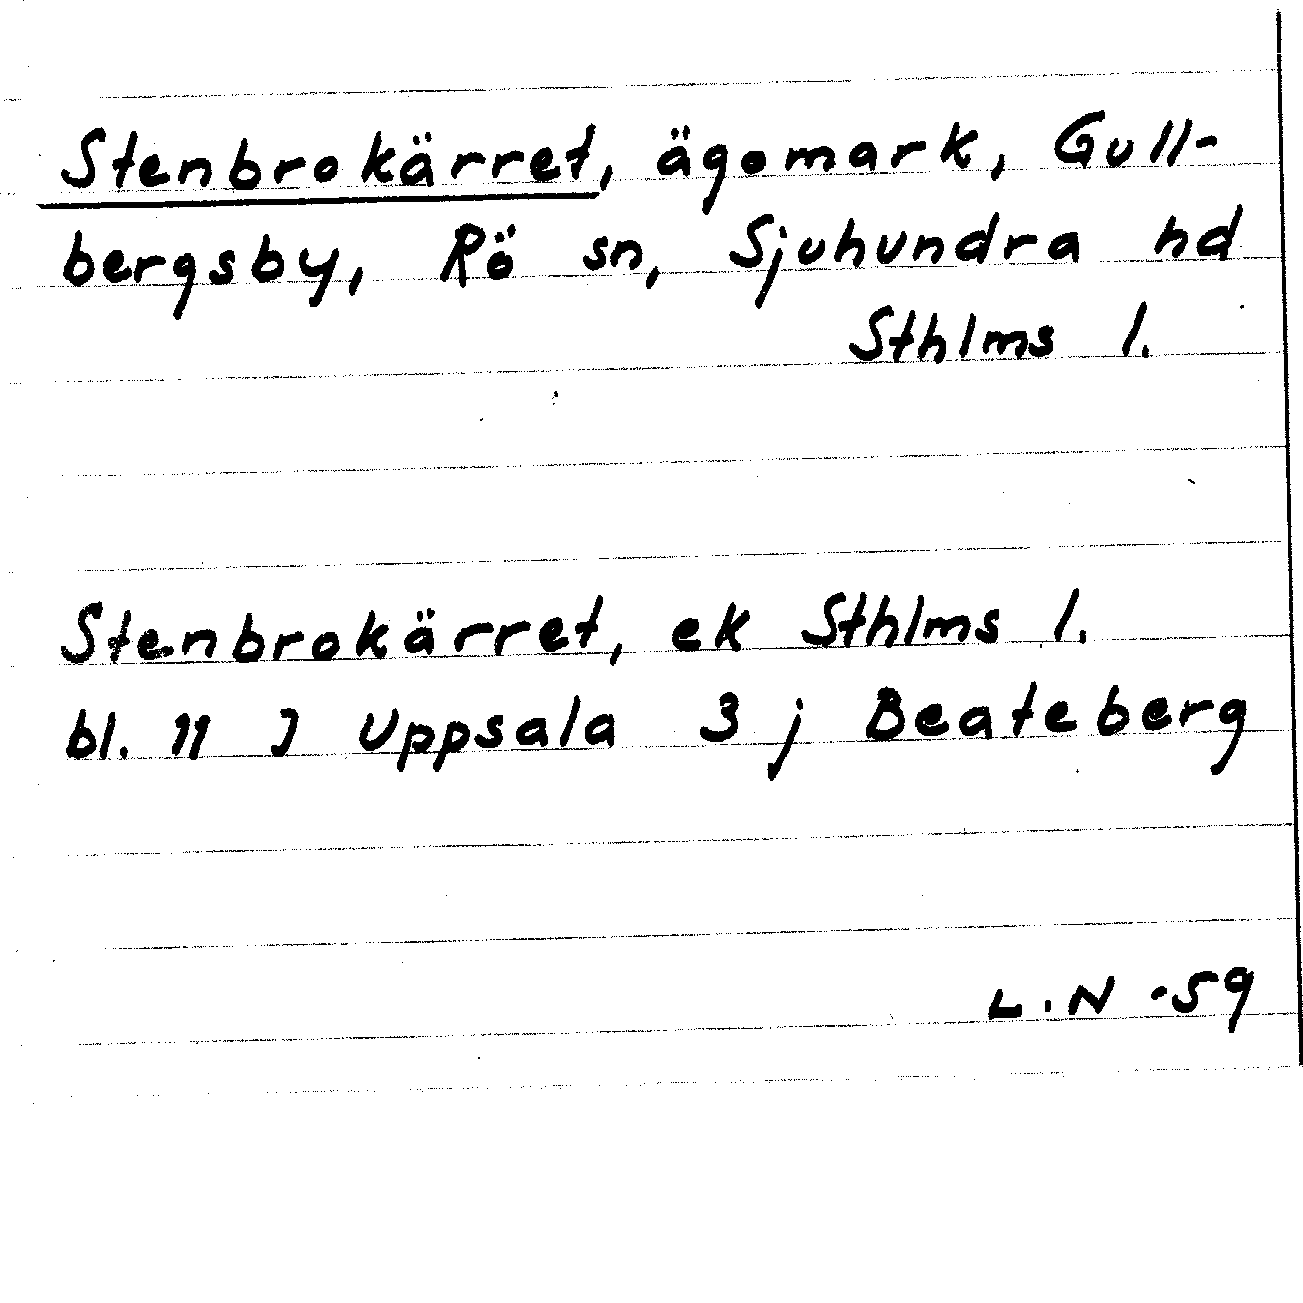 Stenbrokärret, ägomark, Gull-
bergsby, Rö sn, Sjuhundra hd
Sthlms l.
Stenbrokärret, ek Sthlms l.
bl. 11 J Uppsala 3 j Beateberg
L.N -59